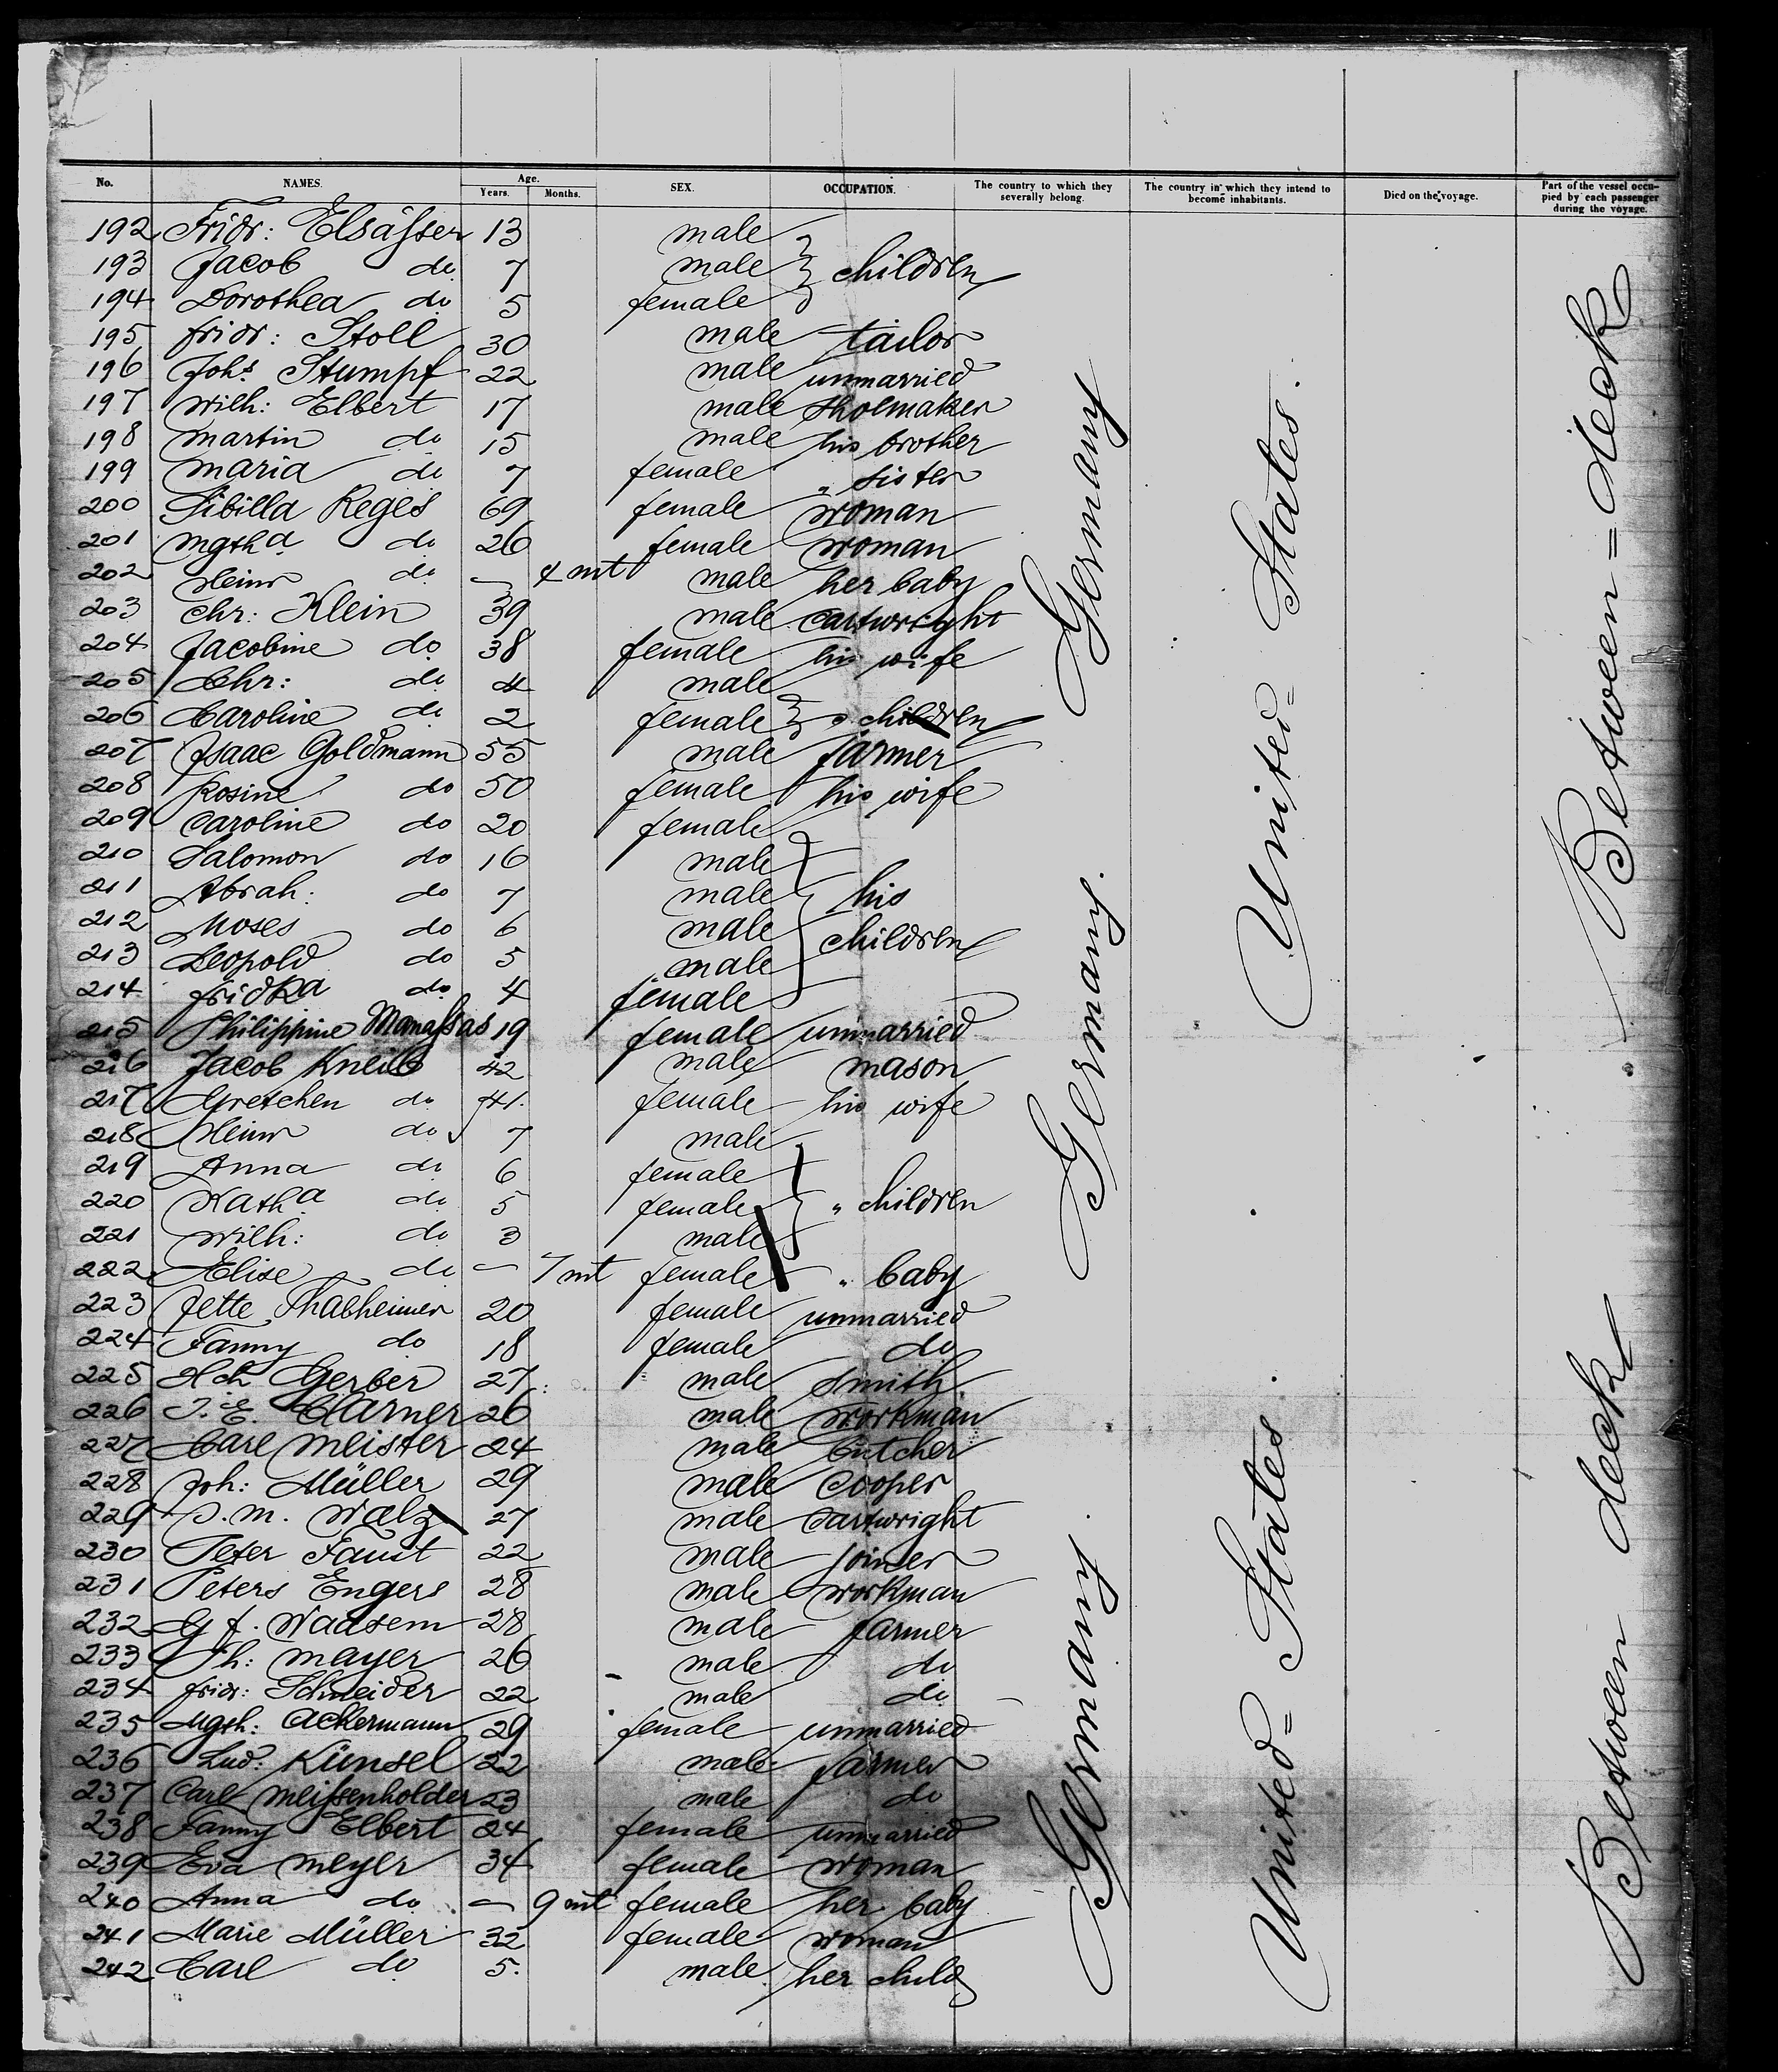 No. NAMES. Age. Years. Months. SEX. OCCUPATION. The country to which they severally belong. The country in which they intend to become inhabitants. Died on the voyage. Part of the vessel occupied by each passenger during the voyage.
192 Fridr: Elsässer 13 male
193 Jacob do 7 male } children
194 Dorothea do 5 female
195 Fridr: Stoll 30 male tailor
196 Johs. Stumpf 22 male unmarried
197 Wilh: Elbert 17 male shoemaker
198 Martin do 15 male his brother
199 Maria do 7 female " sister
200 Sibilla Regés 69 female woman
201 Mgtha do 26 female woman
202 Heinr do — 4 mt male her baby
203 Chr: Klein 39 male cartwright
204 Jacobine do 38 female his wife
205 Chr: do 4 male
206 Caroline do 2 female } " children
207 Isaac Goldmann 55 male farmer
208 Rosine do 50 female his wife
209 Caroline do 20 female
210 Salomon do 16 male
211 Abrah: do 7 male his
212 Moses do 6 male children
213 Leopold do 5 male
214 Fridka do 4 female
215 Philippine Manassas 19 female unmarried
216 Jacob Kneib 42 male mason
217 Gretchen do 41 female his wife
218 Heinr do 7 male
219 Anna do 6 female
220 Katha do 5 female } " children
221 Wilh: do 3 male
222 Elise do — 7 mt female " baby
223 Jette Thalheimer 20 female unmarried
224 Fanny do 18 female do
225 Hch Gerber 27 male smith
226 J. E. Clarner 26 male workman
227 Carl Meister 24 male butcher
228 Joh: Müller 29 male cooper
229 J. M. Walz 27 male cartwright
230 Peter Faust 22 male joiner
231 Peters Engers 28 male workman
232 G f. Waasem 28 male farmer
233 Ph: Mayer 26 male do
234 Fridr: Schneider 22 male do
235 Mgth: Ackermann 29 female unmarried
236 Lud: Künsel 22 male farmer
237 Carl Meissenholder 23 male do
238 Fanny Elbert 24 female unmarried
239 Eva Meyer 34 female woman
240 Anna do — 9 mt female her baby
241 Marie Müller 32 female woman
242 Carl do 5 male her child
Germany
Germany.
Germany.
United= States.
United= States
Between = deck
Between deck